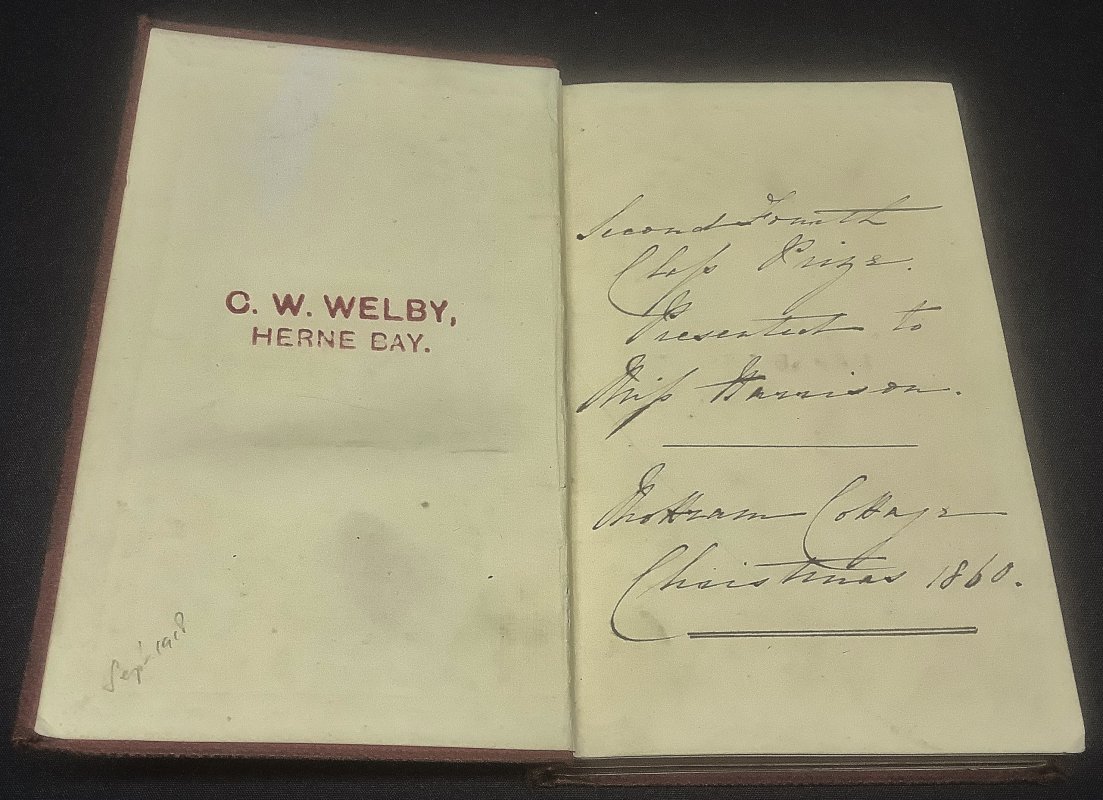 C. W. WELBY,
HERNE BAY.
Sept 1918
Second Fourth
Class Prize.
Presented to
Miss Harrison.
Mottram Cottage
Christmas 1860.